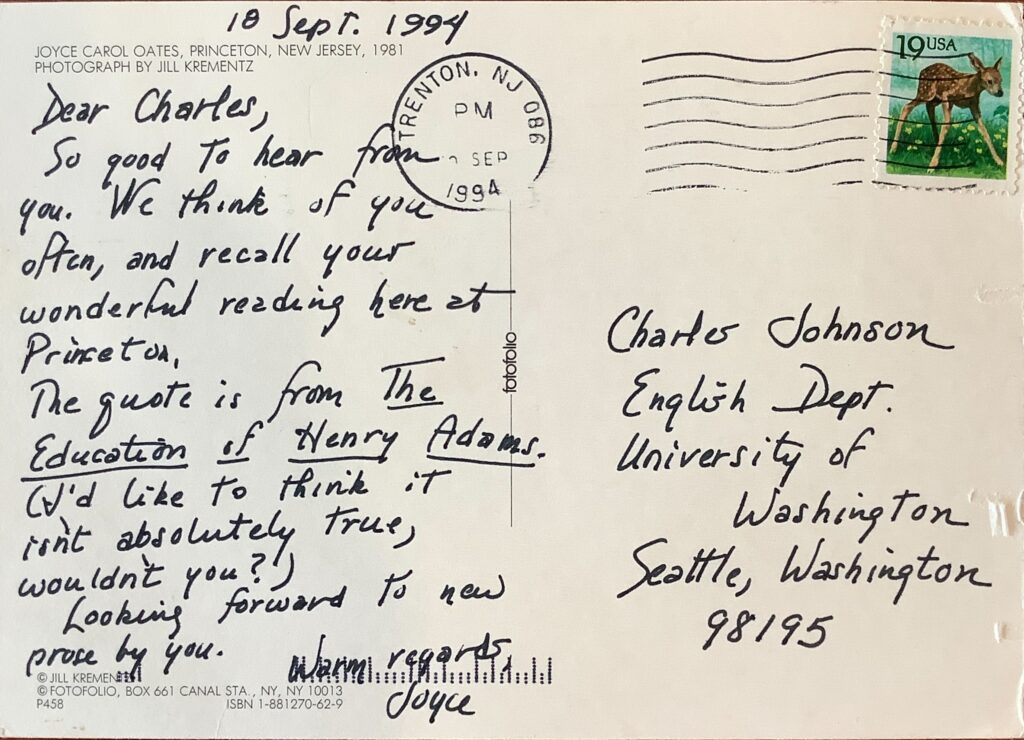 18 Sept. 1994
JOYCE CAROL OATES, PRINCETON, NEW JERSEY, 1981
PHOTOGRAPH BY JILL KREMENTZ
Dear Charles,
So good to hear from
you. We think of you
often, and recall your
wonderful reading here at
Princeton.
The quote is from The
Education of Henry Adams.
(I'd like to think it
isn't absolutely true,
wouldn't you?)
Looking forward to new
prose by you.
Warm regards,
Joyce
© JILL KREMENTZ
© FOTOFOLIO, BOX 661 CANAL STA., NY, NY 10013
P458 ISBN 1-881270-62-9
fotofolio
TRENTON, NJ 086
PM
SEP
1994
19 USA
Charles Johnson
English Dept.
University of
Washington
Seattle, Washington
98195